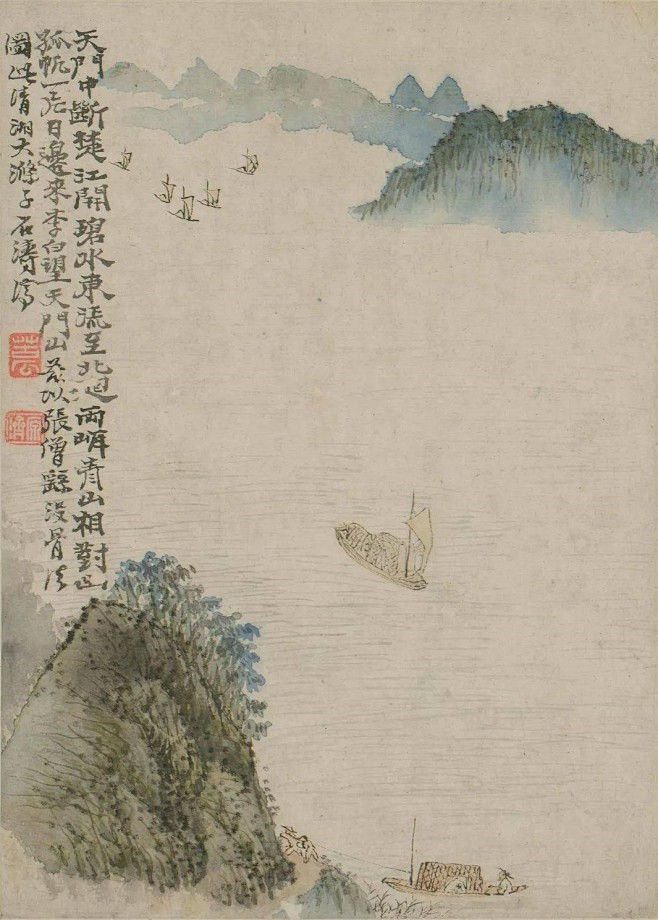 天門中斷楚江開碧水東流至北迴兩岸青山相對出
孤帆一片日邊來李白望天門山茲以張僧繇没骨法
圖此清湘大滌子石濤濟
原濟